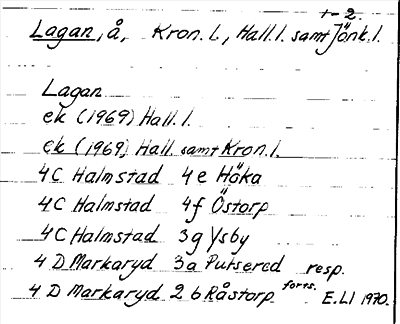 1-2.
Lagan, å, Kron. l., Hall. l. samt Jönk. l.
Lagan
ek (1969) Hall. l.
ek (1969) Hall. samt Kron. l.
4C Halmstad 4e Höka
4C Halmstad 4f Östorp
4C Halmstad 3g Ysby
4 D Markaryd 3a Putsered resp.
4 D Markaryd 2b Råstorp forts. E.LI 1970.